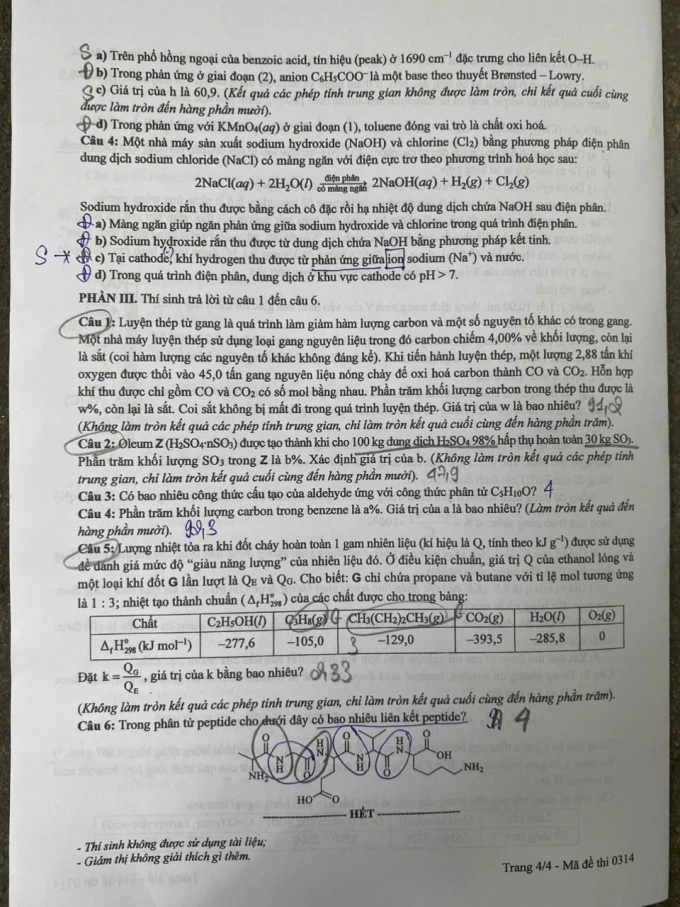 S a) Trên phổ hồng ngoại của benzoic acid, tín hiệu (peak) ở 1690 cm⁻¹ đặc trưng cho liên kết O–H.
Đ b) Trong phản ứng ở giai đoạn (2), anion C₆H₅COO⁻ là một base theo thuyết Brønsted – Lowry.
S c) Giá trị của h là 60,9. (Kết quả các phép tính trung gian không được làm tròn, chỉ kết quả cuối cùng
được làm tròn đến hàng phần mười).
Đ d) Trong phản ứng với KMnO₄(aq) ở giai đoạn (1), toluene đóng vai trò là chất oxi hoá.
Câu 4: Một nhà máy sản xuất sodium hydroxide (NaOH) và chlorine (Cl₂) bằng phương pháp điện phân
dung dịch sodium chloride (NaCl) có màng ngăn với điện cực trơ theo phương trình hoá học sau:
2NaCl(aq) + 2H₂O(l) điện phân có màng ngăn → 2NaOH(aq) + H₂(g) + Cl₂(g)
Sodium hydroxide rắn thu được bằng cách cô đặc rồi hạ nhiệt độ dung dịch chứa NaOH sau điện phân.
Đ a) Màng ngăn giúp ngăn phản ứng giữa sodium hydroxide và chlorine trong quá trình điện phân.
Đ b) Sodium hydroxide rắn thu được từ dung dịch chứa NaOH bằng phương pháp kết tinh.
S → Đ c) Tại cathode, khí hydrogen thu được từ phản ứng giữa ion sodium (Na⁺) và nước.
Đ d) Trong quá trình điện phân, dung dịch ở khu vực cathode có pH > 7.
PHẦN III. Thí sinh trả lời từ câu 1 đến câu 6.
Câu 1: Luyện thép từ gang là quá trình làm giảm hàm lượng carbon và một số nguyên tố khác có trong gang.
Một nhà máy luyện thép sử dụng loại gang nguyên liệu trong đó carbon chiếm 4,00% về khối lượng, còn lại
là sắt (coi hàm lượng các nguyên tố khác không đáng kể). Khi tiến hành luyện thép, một lượng 2,88 tấn khí
oxygen được thổi vào 45,0 tấn gang nguyên liệu nóng chảy để oxi hoá carbon thành CO và CO₂. Hỗn hợp
khí thu được chỉ gồm CO và CO₂ có số mol bằng nhau. Phần trăm khối lượng carbon trong thép thu được là
w%, còn lại là sắt. Coi sắt không bị mất đi trong quá trình luyện thép. Giá trị của w là bao nhiêu?
(Không làm tròn kết quả các phép tính trung gian, chỉ làm tròn kết quả cuối cùng đến hàng phần trăm).
Câu 2: Oleum Z (H₂SO₄·nSO₃) được tạo thành khi cho 100 kg dung dịch H₂SO₄ 98% hấp thụ hoàn toàn 30 kg SO₃.
Phần trăm khối lượng SO₃ trong Z là b%. Xác định giá trị của b. (Không làm tròn kết quả các phép tính
trung gian, chỉ làm tròn kết quả cuối cùng đến hàng phần mười). 47,9
Câu 3: Có bao nhiêu công thức cấu tạo của aldehyde ứng với công thức phân tử C₅H₁₀O? 4
Câu 4: Phần trăm khối lượng carbon trong benzene là a%. Giá trị của a là bao nhiêu? (Làm tròn kết quả đến
hàng phần mười).
Câu 5: Lượng nhiệt tỏa ra khi đốt cháy hoàn toàn 1 gam nhiên liệu (kí hiệu là Q, tính theo kJ g⁻¹) được sử dụng
để đánh giá mức độ "giàu năng lượng" của nhiên liệu đó. Ở điều kiện chuẩn, giá trị Q của ethanol lỏng và
một loại khí đốt G lần lượt là Q_E và Q_G. Cho biết: G chỉ chứa propane và butane với tỉ lệ mol tương ứng
là 1 : 3; nhiệt tạo thành chuẩn (Δ_fH°₂₉₈) của các chất được cho trong bảng:
Chất C₂H₅OH(l) C₃H₈(g) CH₃(CH₂)₂CH₃(g) CO₂(g) H₂O(l) O₂(g)
Δ_fH°₂₉₈ (kJ mol⁻¹) –277,6 –105,0 –129,0 –393,5 –285,8 0
3
Đặt k = Q_G/Q_E, giá trị của k bằng bao nhiêu?
(Không làm tròn kết quả các phép tính trung gian, chỉ làm tròn kết quả cuối cùng đến hàng phần trăm).
Câu 6: Trong phân tử peptide cho dưới đây có bao nhiêu liên kết peptide? 4
O H N O H N O
OH
NH₂ N H O N H O NH₂
HO O
HẾT
- Thí sinh không được sử dụng tài liệu;
- Giám thị không giải thích gì thêm.
Trang 4/4 - Mã đề thi 0314